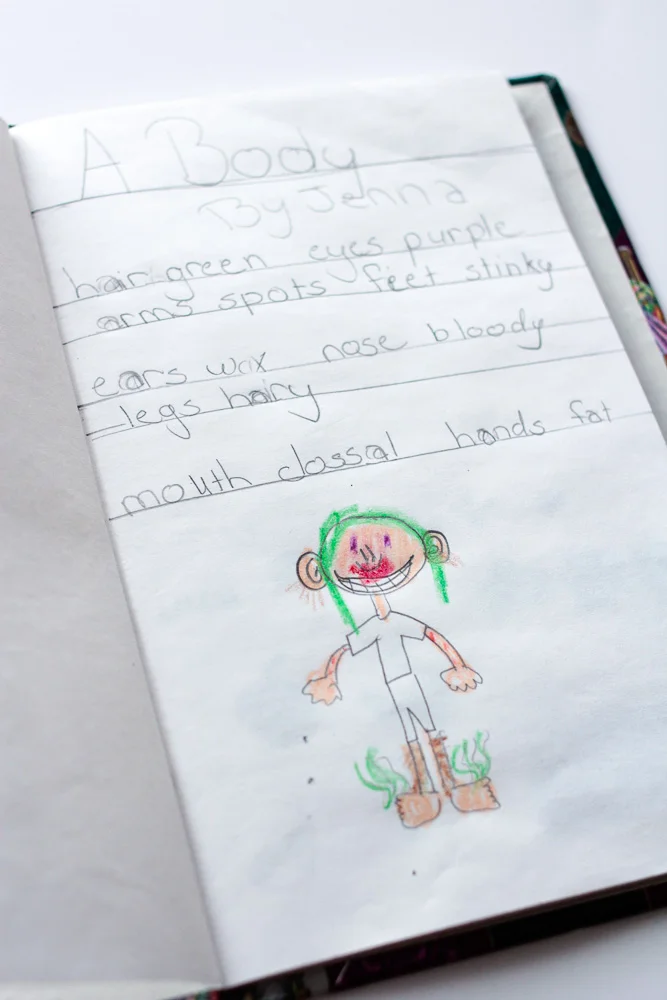 A Body
By Jenna
hair green eyes purple
arms spots feet stinky
ears wax nose bloody
legs hairy
mouth clossal hands fat